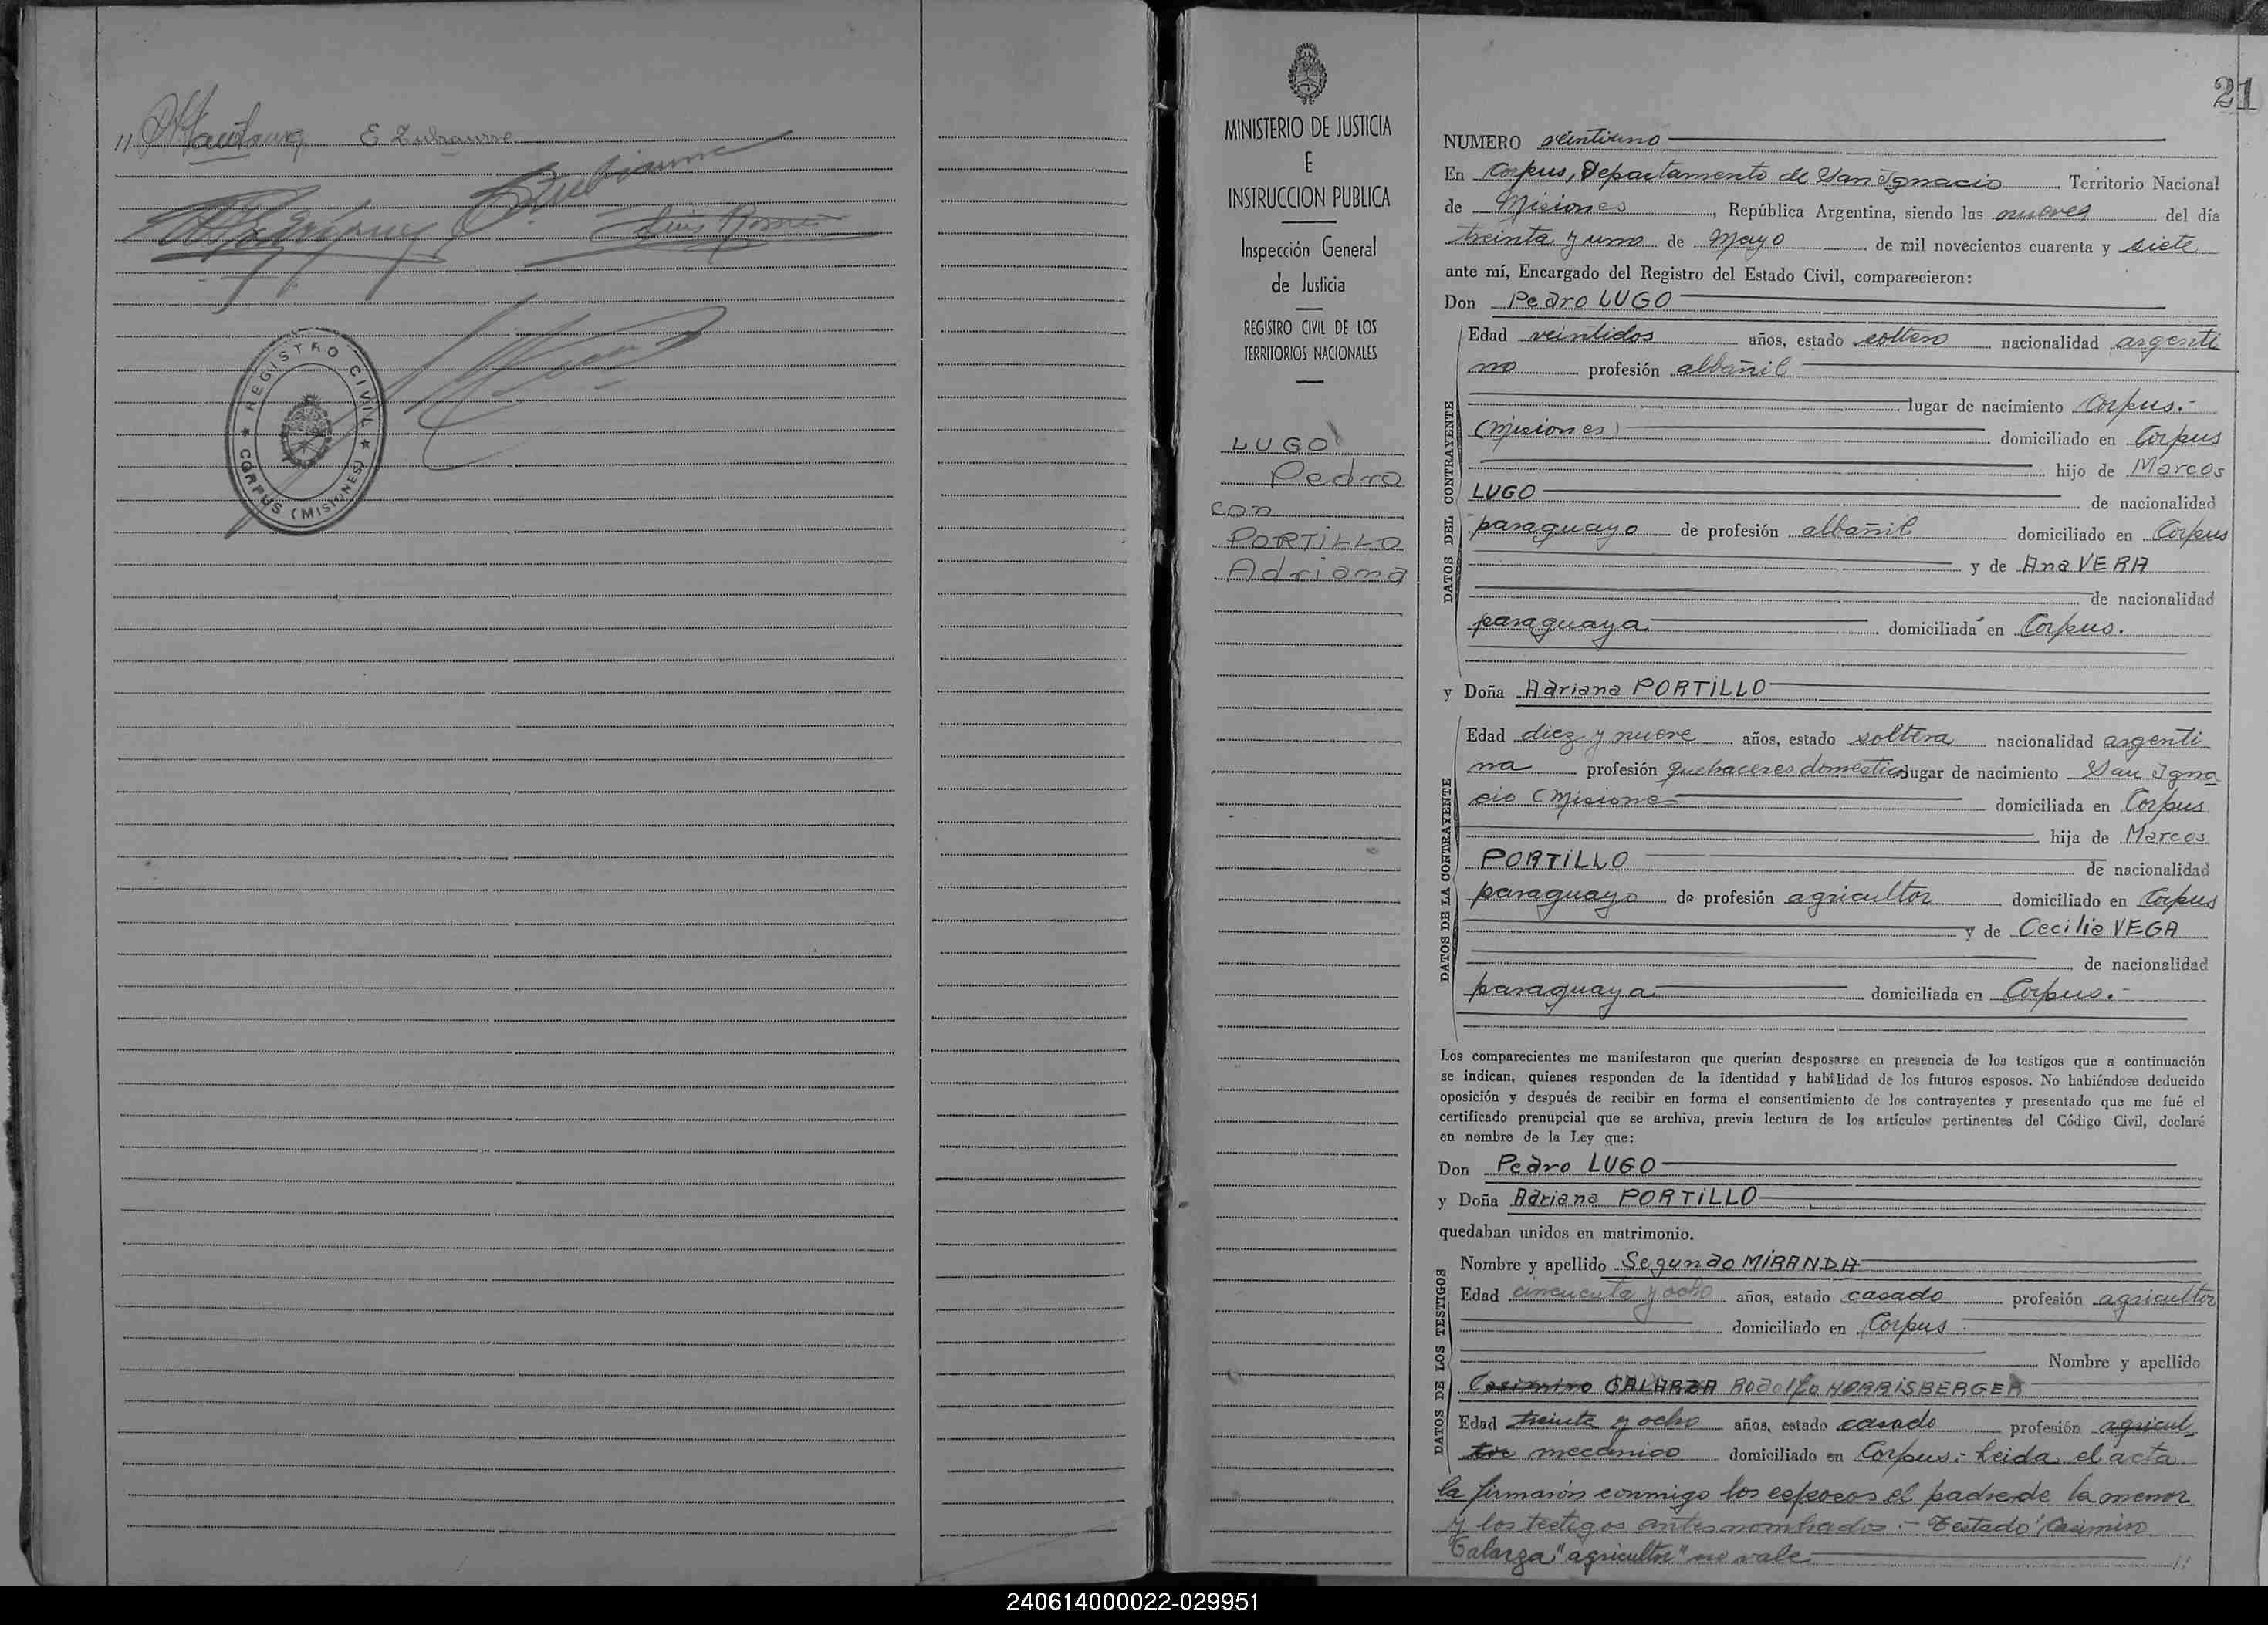 E Zubraurre
REGISTRO CIVIL
CORPUS (MISIONES)
MINISTERIO DE JUSTICIA
E
INSTRUCCION PUBLICA
Inspección General
de Justicia
REGISTRO CIVIL DE LOS
TERRITORIOS NACIONALES
LUGO
Pedro
con
PORTILLO
Adriana
21
NUMERO veintiuno
En Corpus, Departamento de San Ignacio Territorio Nacional
de Misiones, República Argentina, siendo las nueves del día
treinta y uno de Mayo de mil novecientos cuarenta y siete
ante mí, Encargado del Registro del Estado Civil, comparecieron:
Don Pedro LUGO
DATOS DEL CONTRAYENTE
Edad veintidos años, estado soltero nacionalidad argenti
no profesión albañil
lugar de nacimiento Corpus.-
(Misiones) domiciliado en Corpus
hijo de Marcos
LUGO de nacionalidad
paraguayo de profesión albañil domiciliado en Corpus
y de Ana VERA
de nacionalidad
paraguaya domiciliada en Corpus.
y Doña Adriana PORTILLO
DATOS DE LA CONTRAYENTE
Edad diez y nueve años, estado soltera nacionalidad argenti
na profesión quehaceres domesticos lugar de nacimiento San Igna
cio (Misiones domiciliada en Corpus
hija de Marcos
PORTILLO de nacionalidad
paraguayo de profesión agricultor domiciliado en Corpus
y de Cecilia VEGA
de nacionalidad
paraguaya domiciliada en Corpus.-
Los comparecientes me manifestaron que querían desposarse en presencia de los testigos que a continuación
se indican, quienes responden de la identidad y habilidad de los futuros esposos. No habiéndose deducido
oposición y después de recibir en forma el consentimiento de los contrayentes y presentado que me fué el
certificado prenupcial que se archiva, previa lectura de los artículos pertinentes del Código Civil, declaré
en nombre de la Ley que:
Don Pedro LUGO
y Doña Adriana PORTILLO
quedaban unidos en matrimonio.
DATOS DE LOS TESTIGOS
Nombre y apellido Segundo MIRANDA
Edad cincuenta y ocho años, estado casado profesión agricultor
domiciliado en Corpus
Nombre y apellido
Casimiro GALARZA Rodolfo HORRISBERGER
Edad treinta y ocho años, estado casado profesión agricul
tor mecánico domiciliado en Corpus.- Leida el acta
la firmaron conmigo los esposos el padre de la menor
y los testigos antes nombrados.- Testado "Casimiro
Galarza" "agricultor" no vale //
240614000022-029951